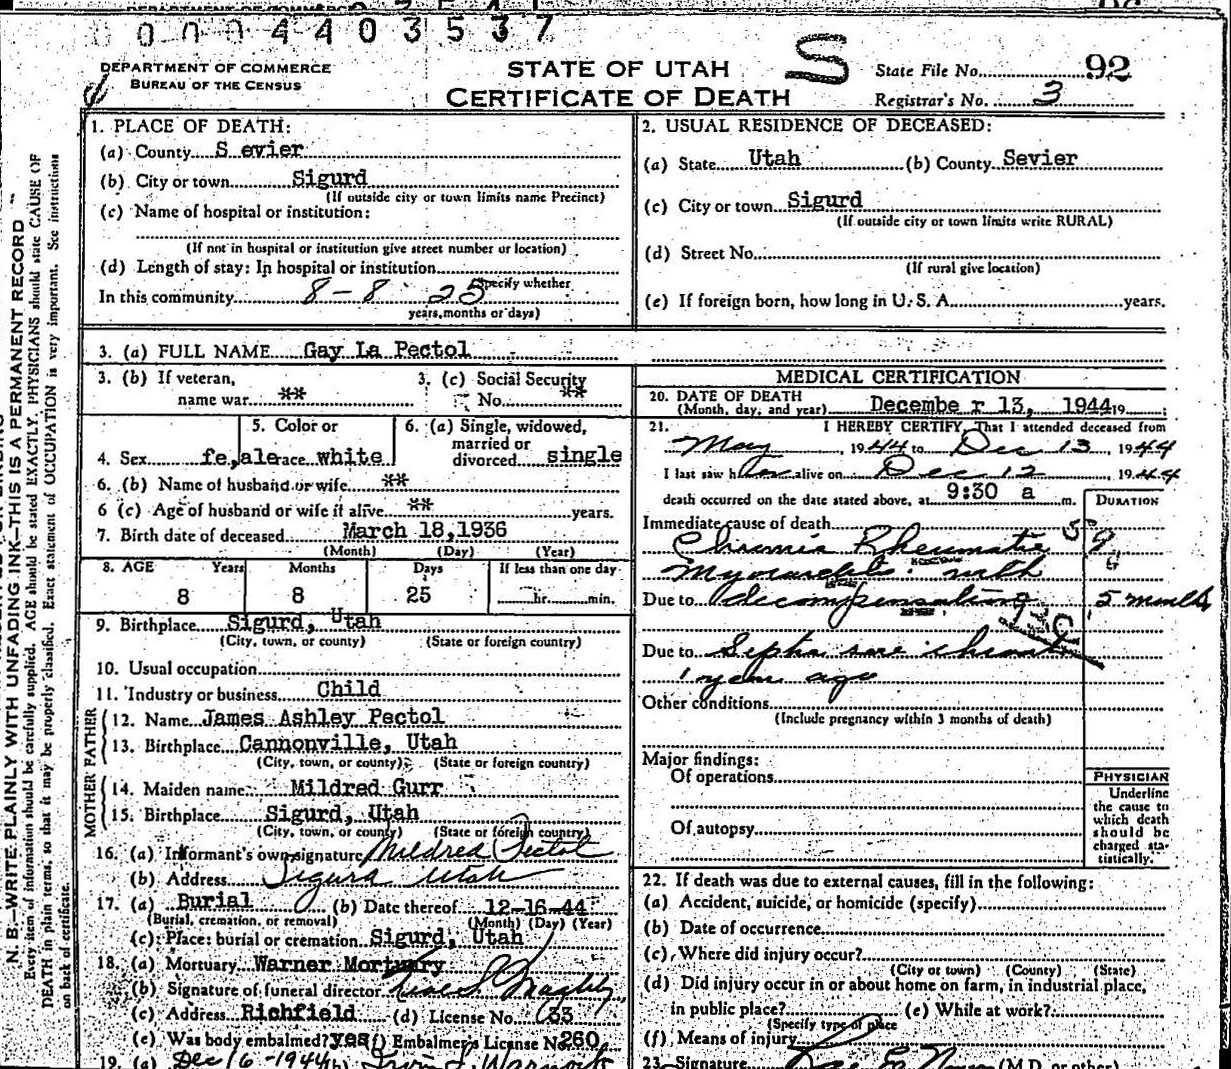 DEPARTMENT OF COMMERCE
0 0 0 4 4 0 3 5 3 7
DEPARTMENT OF COMMERCE
BUREAU OF THE CENSUS
STATE OF UTAH
CERTIFICATE OF DEATH
S
State File No. 92
Registrar's No. 3
N. B.—WRITE PLAINLY WITH UNFADING INK—THIS IS A PERMANENT RECORD
Every item of information should be carefully supplied. AGE should be stated EXACTLY. PHYSICIANS should state CAUSE OF
DEATH in plain terms, so that it may be properly classified. Exact statement of OCCUPATION is very important. See instructions
on back of certificate.
1. PLACE OF DEATH:
(a) County S evier
(b) City or town Sigurd
(If outside city or town limits name Precinct)
(c) Name of hospital or institution:
(If not in hospital or institution give street number or location)
(d) Length of stay: In hospital or institution
Specify whether
In this community 8-8 25
years, months or days)
2. USUAL RESIDENCE OF DECEASED:
(a) State Utah (b) County Sevier
(c) City or town Sigurd
(If outside city or town limits write RURAL)
(d) Street No.
(If rural give location)
(e) If foreign born, how long in U. S. A. years.
3. (a) FULL NAME Gay La Pectol
3. (b) If veteran, name war **
3. (c) Social Security No. **
4. Sex fe,ale
5. Color or race white
6. (a) Single, widowed, married or divorced single
6. (b) Name of husband or wife **
6 (c) Age of husband or wife if alive ** years.
7. Birth date of deceased March 18,1936
(Month) (Day) (Year)
8. AGE Years Months Days If less than one day
8 8 25 hr. min.
9. Birthplace Sigurd, Utah
(City, town, or county) (State or foreign country)
10. Usual occupation
11. Industry or business Child
FATHER
12. Name James Ashley Pectol
13. Birthplace Cannonville, Utah
(City, town, or county) (State or foreign country)
MOTHER
14. Maiden name Mildred Gurr
15. Birthplace Sigurd, Utah
(City, town, or county) (State or foreign country)
16. (a) Informant's own signature Mildred Pectol
(b) Address Sigurd Utah
17. (a) Burial (b) Date thereof 12-16-44
(Burial, cremation, or removal) (Month) (Day) (Year)
(c) Place: burial or cremation Sigurd, Utah
18. (a) Mortuary Warner Mortuary
(b) Signature of funeral director
(c) Address Richfield (d) License No. 33
(e) Was body embalmed? yes (f) Embalmer's License No. 260
19. (a) Dec 16-1944 (b)
MEDICAL CERTIFICATION
20. DATE OF DEATH
(Month, day, and year) Decembe r 13, 1944 19
21. I HEREBY CERTIFY, That I attended deceased from
May 1944 to Dec 13, 1944
I last saw her alive on Dec 12, 1944
death occurred on the date stated above, at 9:30 a m.
DURATION
Immediate cause of death
Chronic Rheumatic
Myocarditis with
Due to decompensation 5 months
Due to Septic sore throat
1 year ago
Other conditions
(Include pregnancy within 3 months of death)
Major findings:
Of operations
Of autopsy
PHYSICIAN
Underline
the cause to
which death
should be
charged sta-
tistically.
22. If death was due to external causes, fill in the following:
(a) Accident, suicide, or homicide (specify)
(b) Date of occurrence
(c) Where did injury occur?
(City or town) (County) (State)
(d) Did injury occur in or about home on farm, in industrial place,
in public place? (e) While at work?
(Specify type of place
(f) Means of injury
23. Signature (M.D. or other)